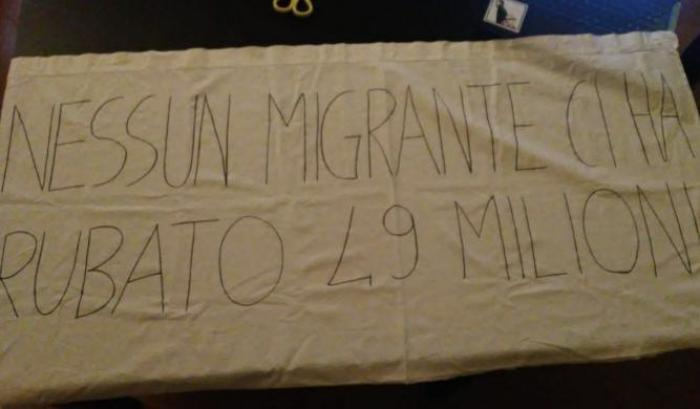 NESSUN MIGRANTE CI HA
RUBATO 49 MILIONI